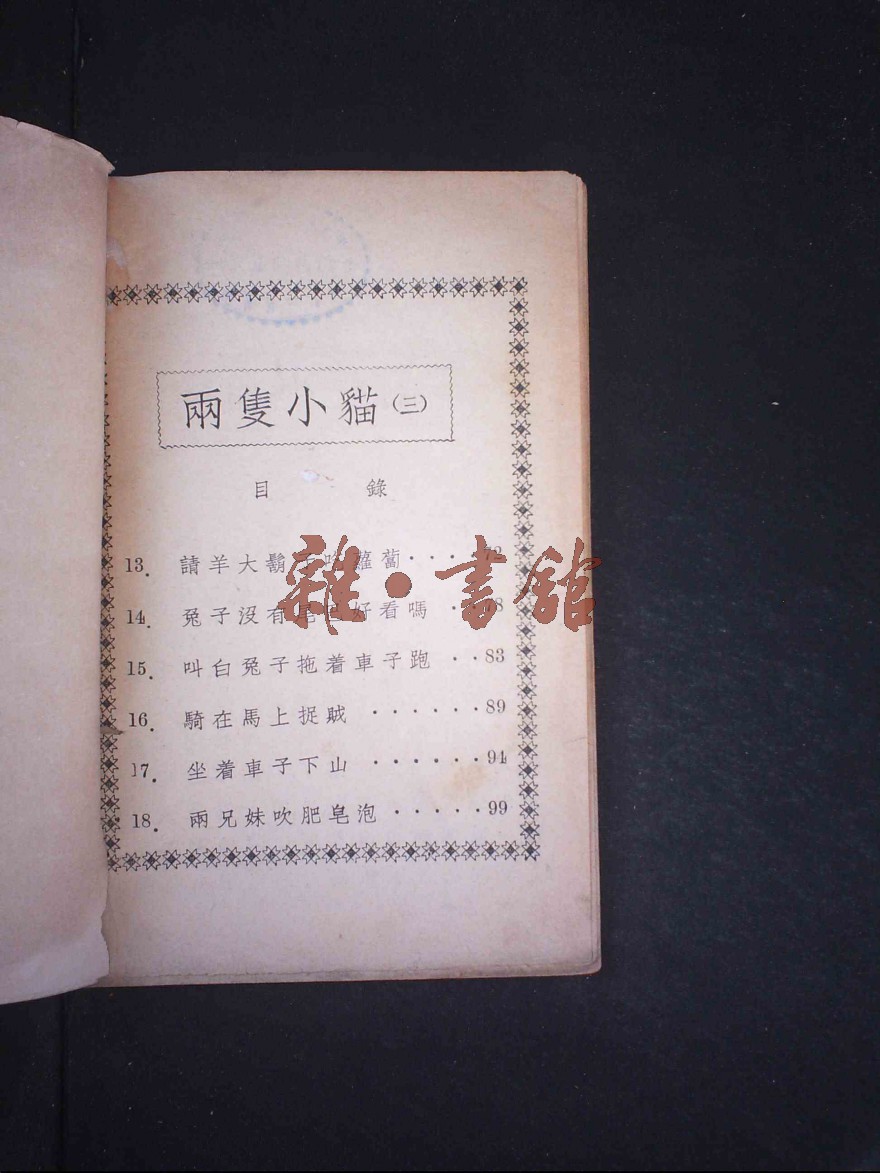 兩隻小貓（三）
目 錄
13. 請羊大鬍子吃蘿蔔·····72
14. 兔子沒有尾巴好看嗎·78
15. 叫白兔子拖着車子跑··83
16. 騎在馬上捉賊······89
17. 坐着車子下山······94
18. 兩兄妹吹肥皂泡·····99
雜·書館